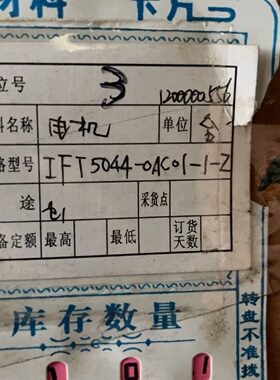 材料 卡片
位号 3 1200000556
料名称 电机 单位 台
格型号 IFT5044-0AC01-1-Z
途 采货点
备定额 最高 最低 订货天数
库存数量
转盘不准拨
0 1